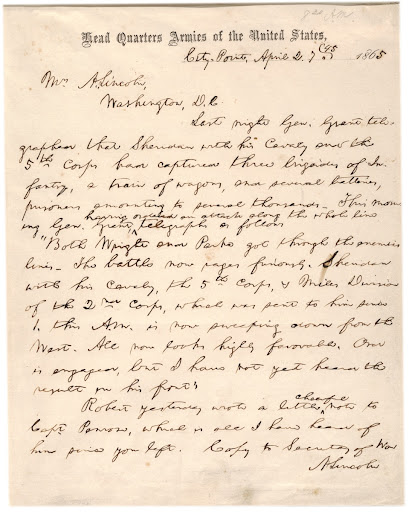 Head Quarters Armies of the United States,
City Point, April 2. 7 45 1865
Mrs. A. Lincoln,
Washington, D.C.
Last night Gen. Grant tele-
graphed that Sheridan with his Cavalry and the
5th Corps had captured three brigades of In-
fantry, a train of wagons, and several batteries,
prisoners amounting to several thousands. This morn-
ing Gen. Grant, having ordered an attack along the whole line
telegraphs as follows
"Both Wright and Parke got through the enemies
lines. The battle now rages furiously. Sheridan
with his Cavalry, the 5th Corps, & Miles Division
of the 2nd Corps, which was sent to him since
1. this A.M. is now sweeping down from the
West. All now looks highly favorable. Ord
is engaged, but I have not yet heard the
result in his front"
Robert yesterday wrote a little cheerful note to
Capt. Penrose, which is all I have heard of
him since you left. Copy to Secretary of War
A. Lincoln